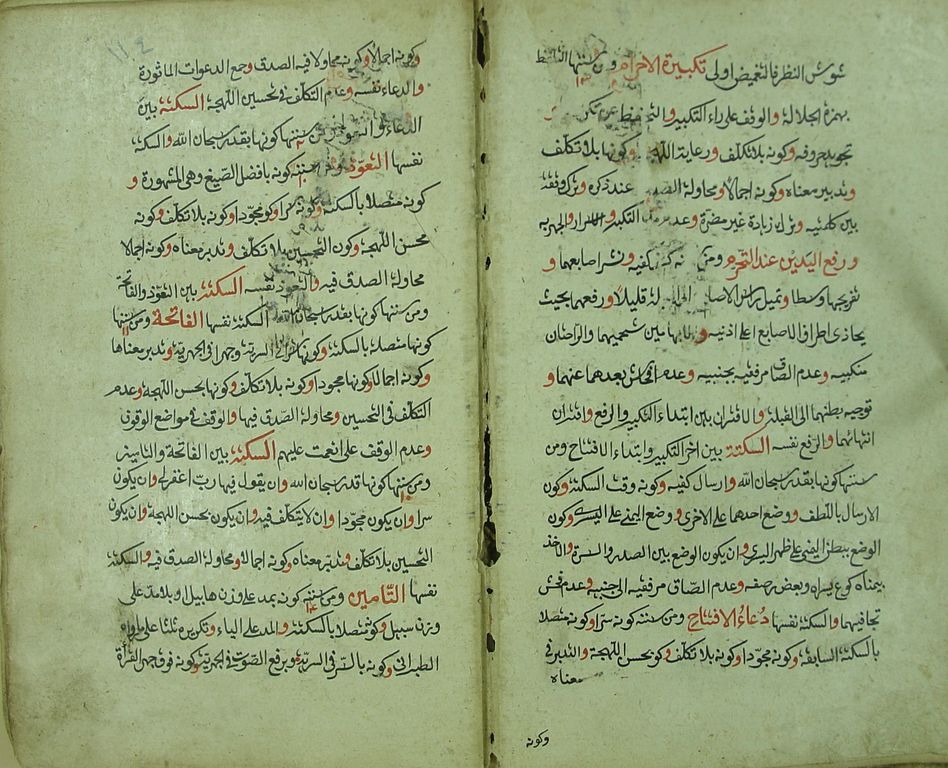 شوش النظر فالتغميض اولى تكبيرة الاحرام ومن سننها
بهمزة الجلالة والوقف على راء التكبير و
تجويد حروفه وكونه بلا تكلف ورعاية وكونه بلا تكلف
وتدبير معناه وكونه اجمالا ومحاولة عند ذكره وترك وقفة
بين كلمتيه وترك زيادة غير مضرة وعدم التكبير
ورفع اليدين عند التحرم ومن كفيه ونشر اصابعهما و
تفريجها وسطا وتميل رأس الاصابع قليلا ورفعهما بحيث
يحاذي اطراف الاصابع اعلا اذنيه و شحميهما والراحتان
منكبيه وعدم الصاق مرفقيه بجنبيه وعدم بعدهما عنهما و
توجيه بطنهما الى القبلة والاقتران بين ابتداء التكبير والرفع واقتران
انتهائهما والرفع نفسه السكتة بين اخر التكبير وابتداء الافتتاح ومن
سننها كونها بقدر سبحان الله وارسال كفيه وكونه وقت السكتة وكون
الارسال بالتلطف ووضع احدهما على الاخرى ووضع اليمنى على اليسرى وكون
الوضع ببطن اليمنى على ظهر اليسرى وان يكون الوضع بين الصدر والسرة والاخذ
بيمناه كوع يسراه وبعض رصغه وعدم الصاق مرفقيه الى جنبيه وعدم
تجافيهما والسكتة نفسها دعاء الافتتاح ومن سننه كونه سرا وكونه متصلا
بالسكتة السابقة وكونه مجودا وكونه بلا تكلف وكونه بحسن اللهجة والتدبر في
معناه
وكونه
وكونه اجمالا وكونه محاولا فيه الصدق وجمع الدعوات الماثورة
والدعاء نفسه وعدم التكلف في تحسين اللهجة السكتة بين
الدعاء والتعوذ ومن سننها كونها بقدر سبحان الله والسكتة
نفسها التعوذ ومن سننه كونه بافضل الصيغ وهي المشهورة و
كونه متصلا بالسكتة وكونه سرا وكونه مجودا وكونه بلا تكلف وكونه
بحسن اللهجة وكون التحسين بلا تكلف وتدبر معناه وكونه اجمالا
محاولة الصدق فيه والتعوذ نفسه السكتة بين التعوذ والفاتحة
ومن سننها كونها بقدر سبحان السكتة نفسها الفاتحة ومن سننها
كونها متصلة بالسكتة وكونها سرا في السرية وجهرا في الجهرية وتدبر معناها
وكونه اجمالا وكونها مجودا وكونه بلا تكلف وكونها بحسن اللهجة وعدم
التكلف في التحسين ومحاولة الصدق فيها والوقف في مواضع الوقوف
وعدم الوقف على انعمت عليهم السكتة بين الفاتحة والتامين
ومن سننها كونها قدر سبحان الله وان يقول فيها رب اغفر لي وان يكون
سرا وان يكون مجودا وان لا يتكلف فيه وان يكون بحسن اللهجة وان يكون
التحسين بلا تكلف وتدبر معناه وكونه اجمالا ومحاولة الصدق فيه والسكتة
نفسها التامين ومن سننه كونه بمد على وزن هابيل او بلا مد على
وزن سبيل وكونه متصلا بالسكتة والمد على الياء وتكريره ثلثا على ما رواه
الطبراني وكونه بالسر في السرية وبرفع الصوت في الجهرية وكونه فوق جهر القرأة